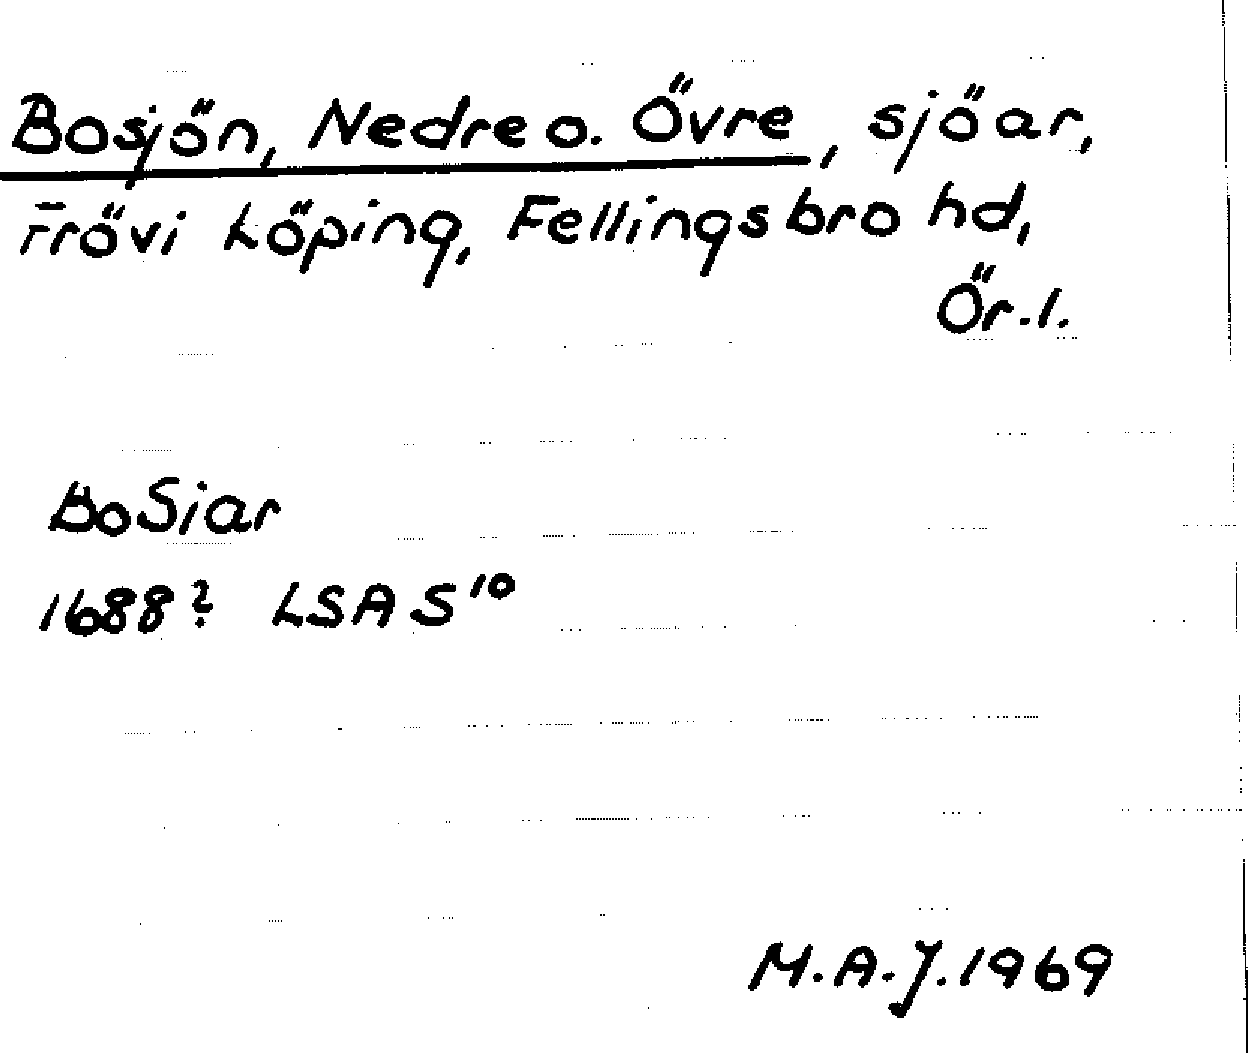 Bosjön, Nedre o. Övre, sjöar,
Frövi köping, Fellingsbro hd,
Ör. l.
BoSiar
1688? LSA S¹⁰
M.A.J. 1969